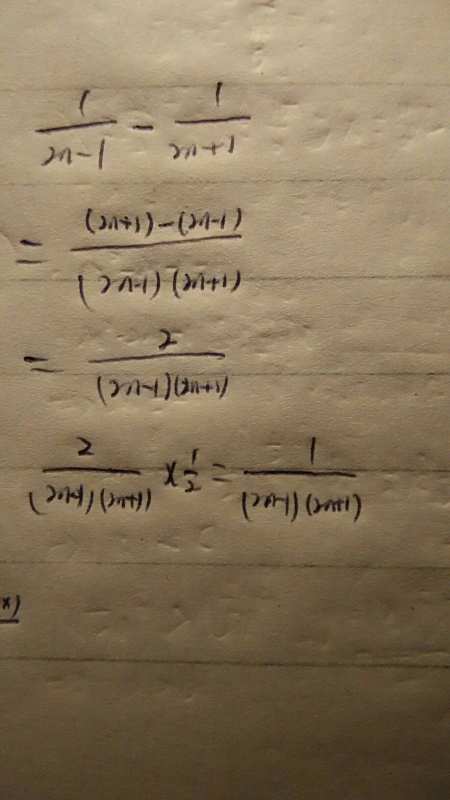 1/(2n-1) - 1/(2n+1)
= ((2n+1)-(2n-1))/((2n-1)(2n+1))
= 2/((2n-1)(2n+1))
2/((2n-1)(2n+1)) × 1/2 = 1/((2n-1)(2n+1))